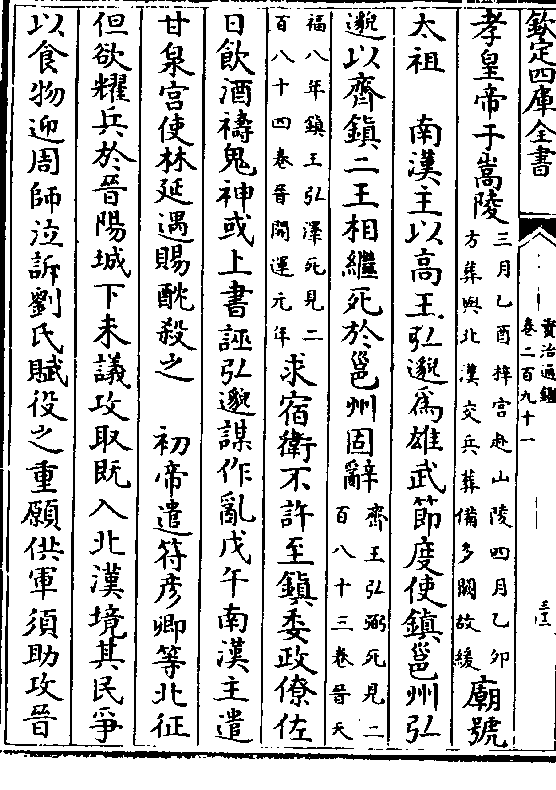 欽定四庫全書
資治通鑑
卷二百九十一
孝皇帝于嵩陵三月乙酉梓宫赴山陵四月乙卯方葬與北漢交兵葬備多闕故緩廟號
太祖　南漢主以高王弘邈為雄武節度使鎮邕州弘
邈以齊鎮二王相繼死於邕州固辭齊王弘弼死見二百八十三卷晉天
福八年鎮王弘澤死見二百八十四卷晉開運元年求宿衛不許至鎮委政僚佐
日飲酒禱鬼神或上書誣弘邈謀作亂戊午南漢主遣
甘泉宫使林延遇賜酖殺之　初帝遣符彦卿等北征
但欲耀兵於晉陽城下未議攻取既入北漢境其民爭
以食物迎周師泣訴劉氏賦役之重願供軍須助攻晉